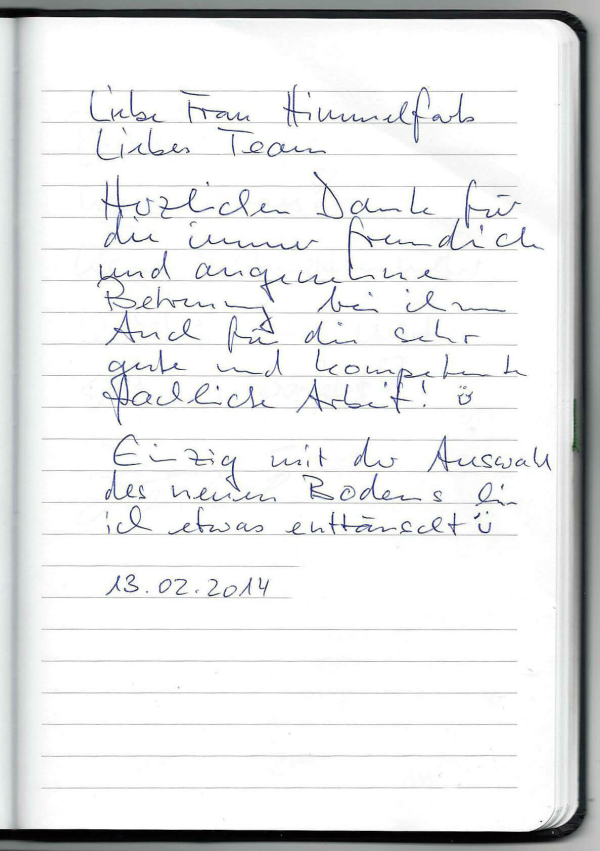 Liebe Frau Himmelfarb
Liebes Team
Herzlichen Dank für
die immer freundlich
und angenehme
Betreuung bei ihnen
Auch für die sehr
gute und kompetente
fachliche Arbeit! ü
Einzig mit der Auswahl
des neuen Bodens bin
ich etwas enttäuscht ü
13.02.2014